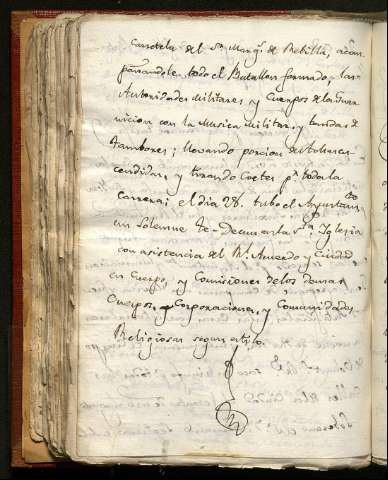 Carretela del Sr. Marqs. de Rebilla, acom
pañandole todo el Batallon formado, las
Autoridades Militares y Cuerpos de la Guar
nicion con la Musica Militar, y tandas de
tambores; llevando porcion de Achas en
cendidas, y tirando Coetes pr. toda la
Carrera; el dia 28. tubo el Ayuntamto.
un Solemne Te-Deum en la Sta. Iglesia
con asistencia del Rl. Acuerdo y Ciudad
en Cuerpo, y Comisiones de los demas
Cuerpos, Corporaciones, y Comunidades
Religiosas segun estilo.